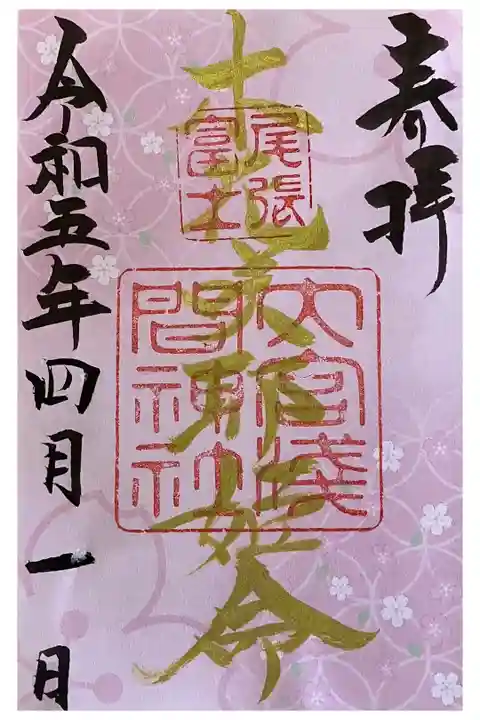 奉拝
木花咲耶姫命
尾張
富士
大宮淺
間神社
令和五年四月一日